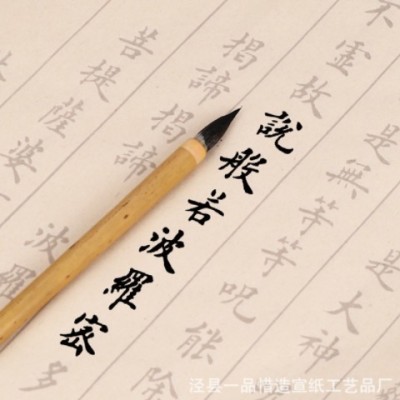 是大神
是無等等呪能除
不虛故說般若波羅密多
揭諦揭諦波
菩提薩婆
泾县一品沿造宣纸工艺品厂